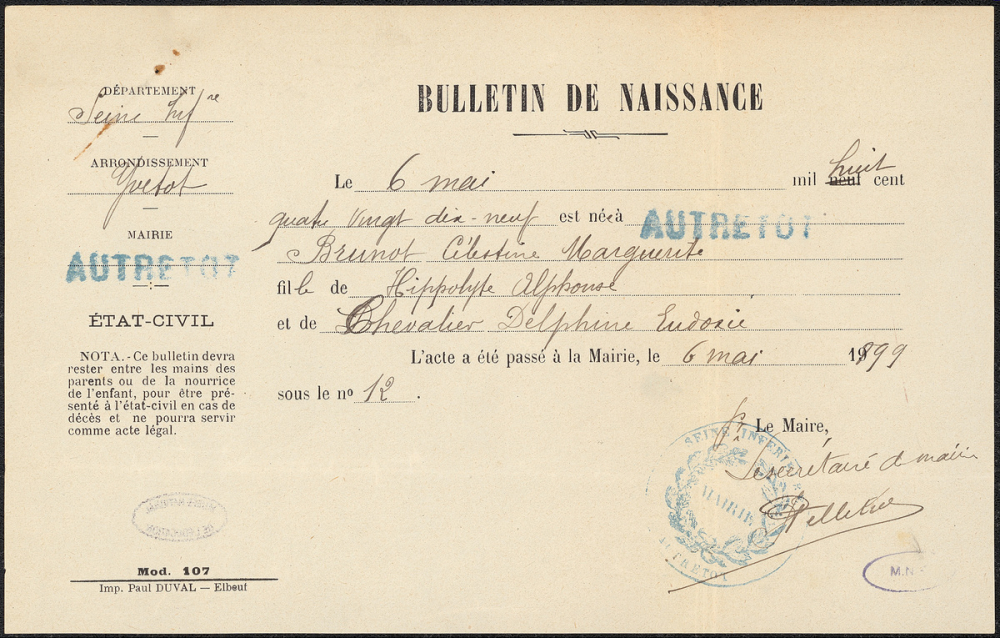 DÉPARTEMENT
Seine Infre
ARRONDISSEMENT
Yvetot
MAIRIE
AUTRETOT
ÉTAT-CIVIL
NOTA.- Ce bulletin devra
rester entre les mains des
parents ou de la nourrice
de l'enfant, pour être pré-
senté à l'état-civil en cas de
décès et ne pourra servir
comme acte légal.
Mod. 107
Imp. Paul DUVAL — Elbeuf
BULLETIN DE NAISSANCE
Le 6 mai mil neuf huit cent
quatre vingt dix-neuf est née à AUTRETOT
Brunot Célestine Marguerite
fille de Hippolyte Alphonse
et de Chevalier Delphine Eudoxie
L'acte a été passé à la Mairie, le 6 mai 1899
sous le no 12.
Pr Le Maire,
Le secrétaire d mairie
Pelletier
SEINE INFERIEURE
MAIRIE
AUTRETOT
M.N